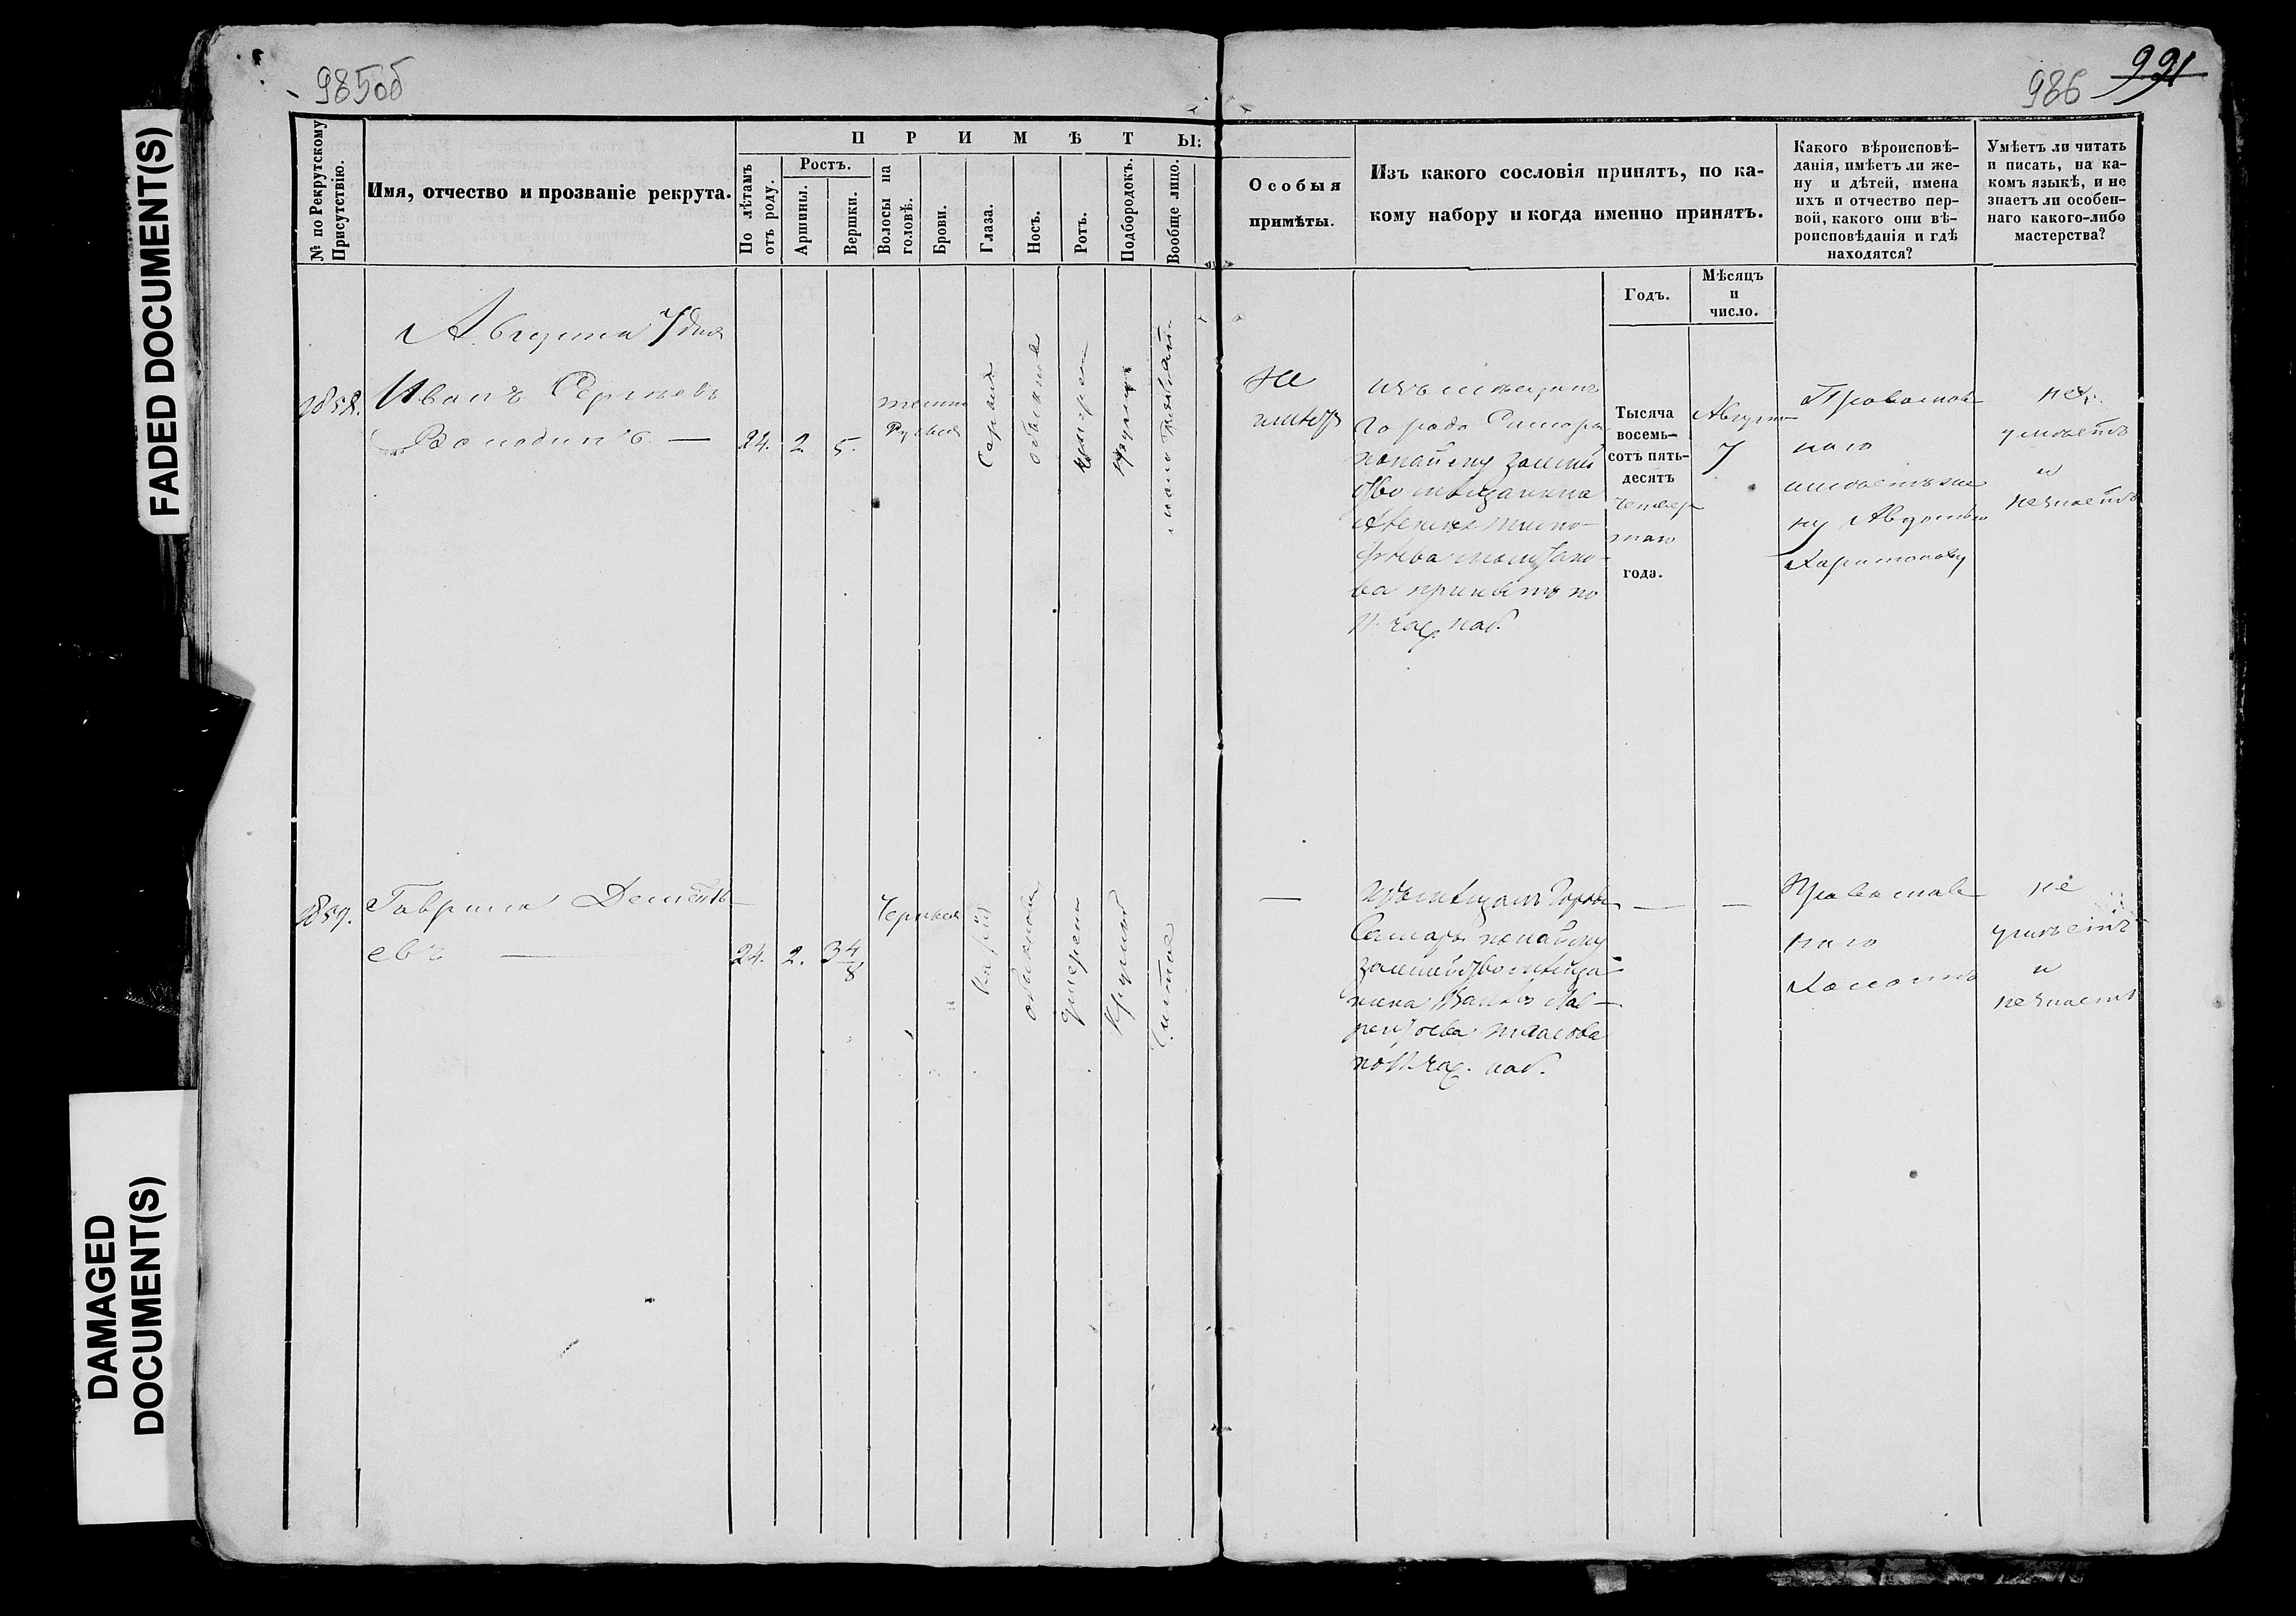 FADED DOCUMENT(S)
DAMAGED
DOCUMENT(S)
985об
986
991
№ по Рекрутскому
Присутствію.
Имя, отчество и прозваніе рекрута.
ПРИМѢТЫ:
По лѣтамъ
отъ роду.
Ростъ.
Аршины.
Вершки.
Волосы на
головѣ.
Брови.
Глаза.
Носъ.
Ротъ.
Подбородокъ.
Вообще лицо.
Особыя
примѣты.
Изъ какого сословія принятъ, по ка-
кому набору и когда именно принятъ.
Годъ.
Мѣсяцъ
и
число.
Какого вѣроисповѣ-
данія, имѣетъ ли же-
ну и дѣтей, имена
ихъ и отчество пер-
вой, какого они вѣ-
роисповѣданія и гдѣ
находятся?
Умѣетъ ли читать
и писать, на ка-
комъ языкѣ, и не
знаетъ ли особен-
наго какого-либо
мастерства?
Августа 7 дня
2858.
Иванъ Сергѣевъ
Володинъ —
24. 2 5.
темно
русыя
Сѣрыя
обыкнов
умѣрен
круглый
Не
имѣетъ
изъ мѣщанъ
города Самары
по найму за мѣщ
мѣщанина
принятъ по
11 час. наб.
Тысяча
восемь-
сотъ пять-
десятъ
четвер-
таго
года.
Августа
7
Православ
наго
имѣетъ же
ну Авдотью
Харитонову
не
умѣетъ
и
не знаетъ
2859.
Гаврила Дементь-
евъ —
24. 2. 3 4/8
Черныя
Каріе
обыкнов
умѣрен
Круглый
Чистое
—
Изъ мѣщанъ Города
Самары по найму
мѣща
нина
рентьева Власова
по 11 час. наб.
—
—
Православ
наго
Холостъ
не
умѣетъ
и
не знаетъ